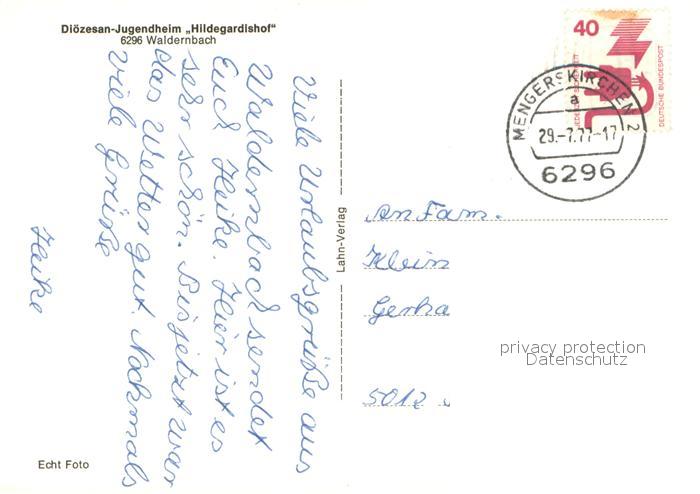 Diözesan-Jugendheim „Hildegardishof“
6296 Waldernbach
Viele Urlaubsgrüße aus
Waldernbach sendet
Euch Heike. Hier ist es
sehr schön. Bis jetzt war
das Wetter gut. Nochmals
viele Grüße
Heike
Echt Foto
Lahn-Verlag
40
DEUTSCHE BUNDESPOST
MENGERSKIRCHEN 2
a
29.-7.77-17
6296
An Fam.
Klein
Gerha
privacy protection
Datenschutz
5012